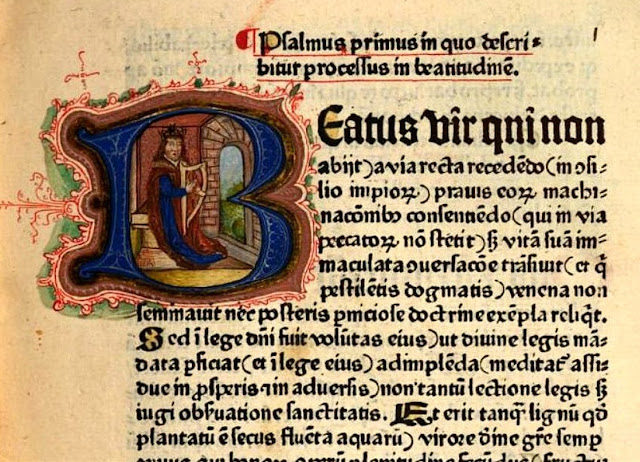 ¶ Psalmus primus in quo descri-
bitur processus in beatitudinē. 1
BEatus vir qui non
abijt) a via recta recedēdo (in ꝯsi-
lio impioꝝ) pravis eoꝝ machi-
nacōnibꝰ consentiendo (qui in via
peccatoꝝ nō stetit) sꝫ vitā suā im-
maculata ꝯversacōe trāsivit (et q̄
pestilētis dogmatis) venena non
seminavit nec posteris pniciose doctrine exēpla reliqt.
Sed ī lege dn̄i fuit volūtas eius) ut divine legis mā-
data pficiat (et ī lege eius) adimplēda (meditat᷑ assi-
due in ꝓsperis ⁊ in adversis) non tantū lectione legis sꝫ
iugi obfuatione sanctitatis. Et erit tanqͣ lignū qd̄
plantatū ē secus fluēta aquarū)